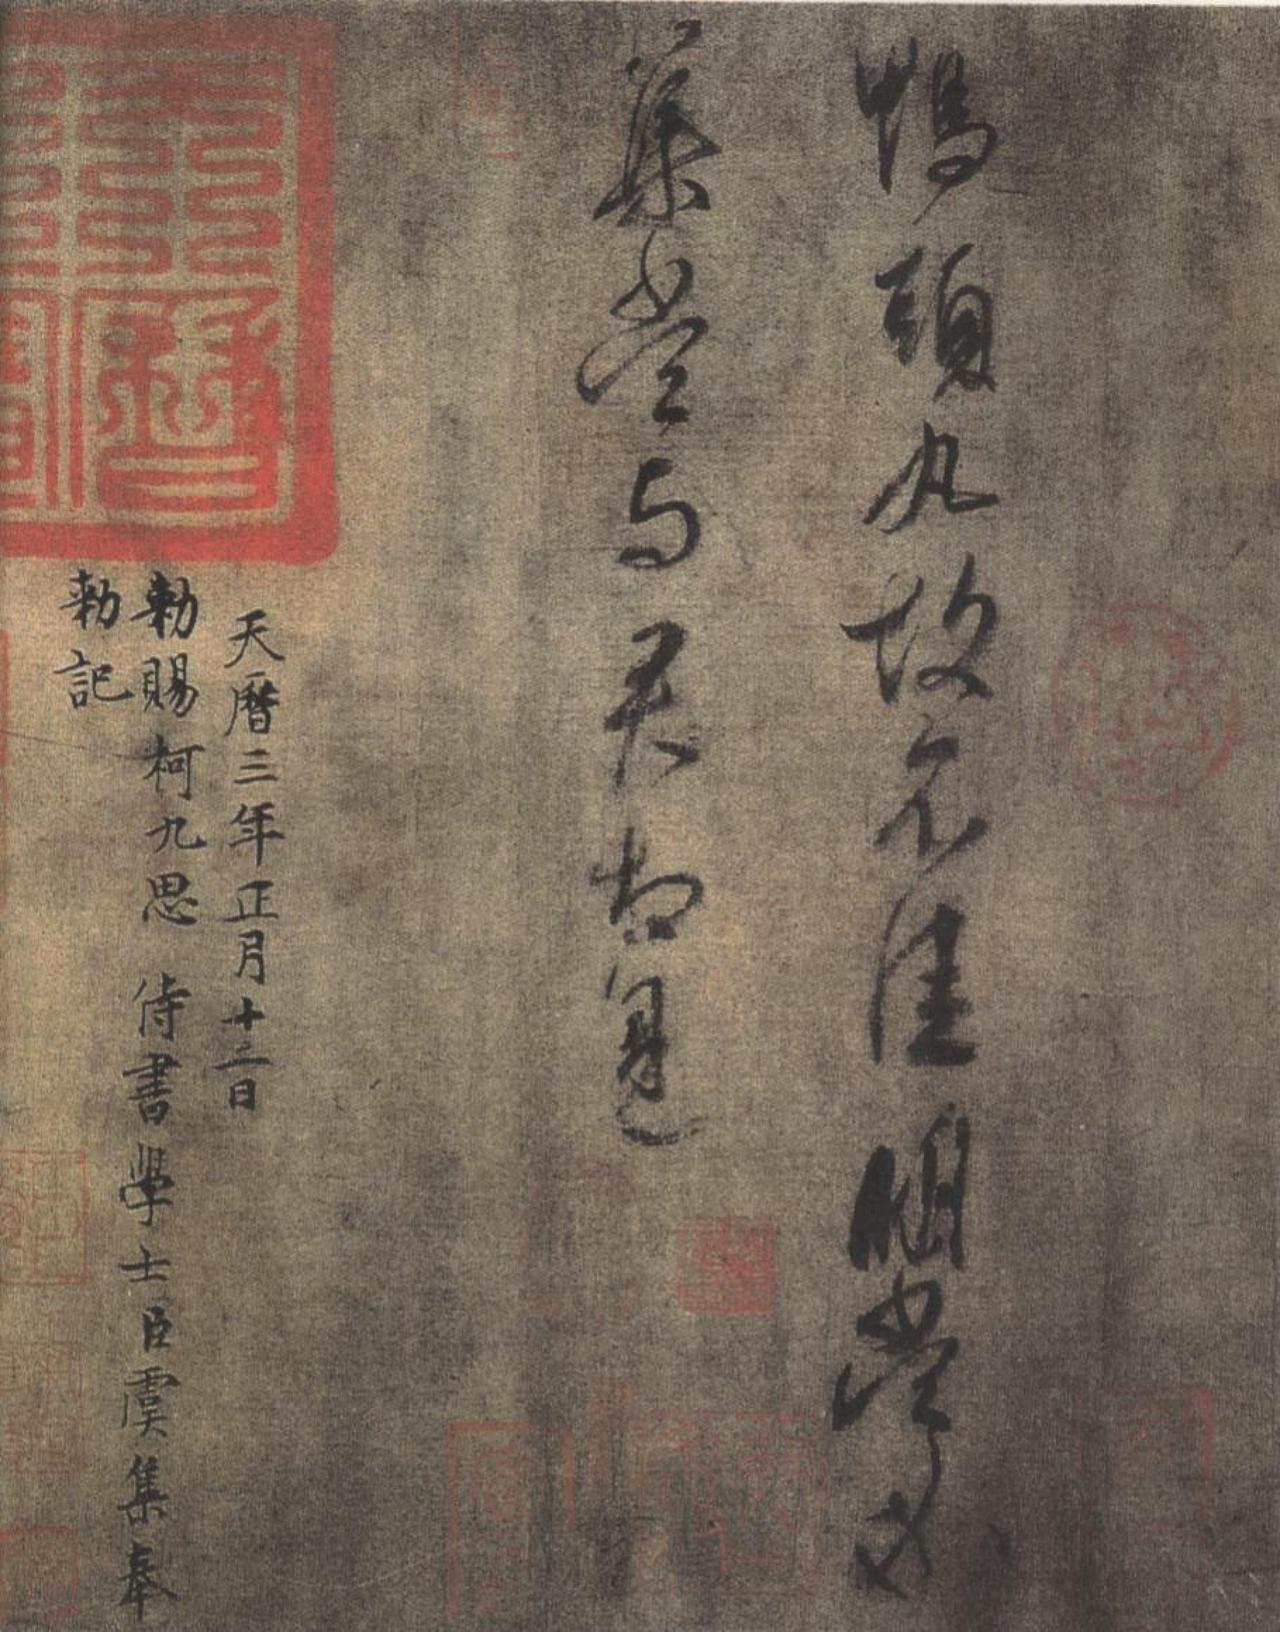 鴨頭丸故不佳明當必
集當与君相見
天曆三年正月十二日
勅賜柯九思侍書學士臣虞集奉
勅記
天曆